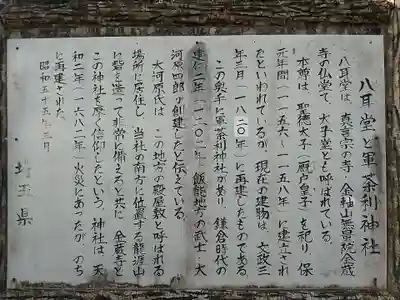 八耳堂と軍荼利神社
八耳堂は、真言宗の寺・金軸山無量院金蔵
寺の仏堂で、太子堂とも呼ばれている。
本尊は、聖徳太子(厩戸皇子)を祀り、保
元年間(一一五六〜一一五八年)に建立され
たといわれているが、現在の建物は、文政三
年三月(一八二〇年)に再建したものである。
この奥手に軍荼利神社があり、鎌倉時代の
建仁二年(一二〇二年)飯能地方の武士・大
河原四郎の創建したと伝えている。
大河原氏は、この地方の殿屋敷と呼ばれる
場所に居住し、当社の南方に位置する龍涯山
に砦を造って非常に備えると共に、金蔵寺と
この神社を厚く信仰したという。神社は、天
和二年(一六八二年)火災にあったが、のち
に再建された。
昭和五十五年三月
埼玉県